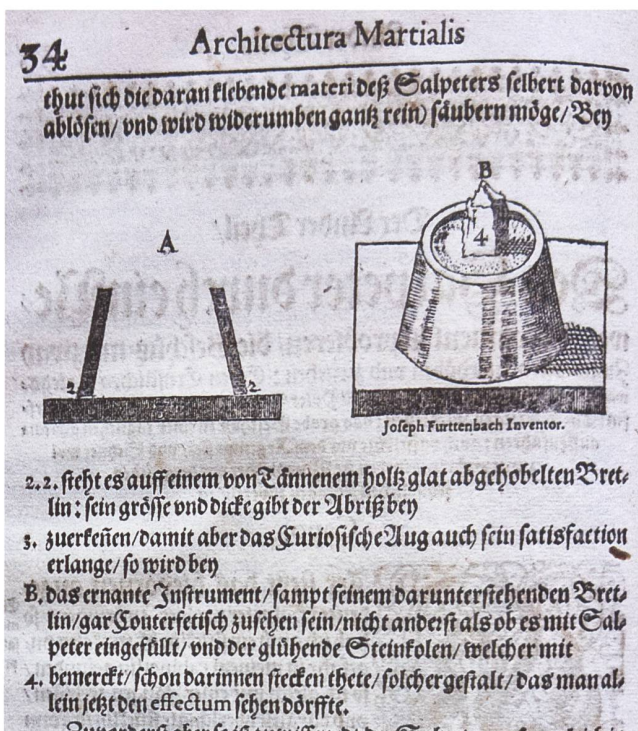 34
Architectura Martialis
thut sich die daran klebende materi deß Salpeters selbert darvon
ablösen/ vnd wird widerumben gantz rein) säubern möge/ Bey
A
B
4
2
2
Joseph Furttenbach Inventor.
2.2. steht es auff einem von Tännenem holtz glat abgehobelten Bret-
lin: sein grösse vnd dicke gibt der Abriß bey
3. zuerkeñen/damit aber das Curiosische Aug auch sein satisfaction
erlange/ so wird bey
B. das ernante Instrument/ sampt seinem darunterstehenden Bret-
lin/gar Conterfetisch zusehen sein/nicht anderst als ob es mit Sal-
peter eingefüllt/ vnd der glühende Steinkolen/ welcher mit
4. bemerckt/ schon darinnen stecken thete/ solcher gestalt/ das man al-
lein jetzt den effectum sehen dörffte.